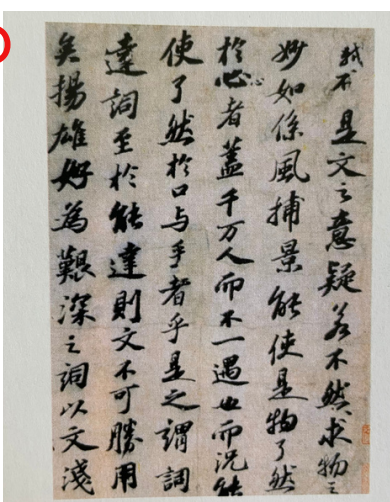 不是文之意疑若不然求物之
妙如係風捕景能使是物了然
於心者蓋千万人而不一遇也而況能
使了然於口与手者乎是之謂詞
達詞至於能達則文不可勝用
矣揚雄好為艱深之詞以文淺